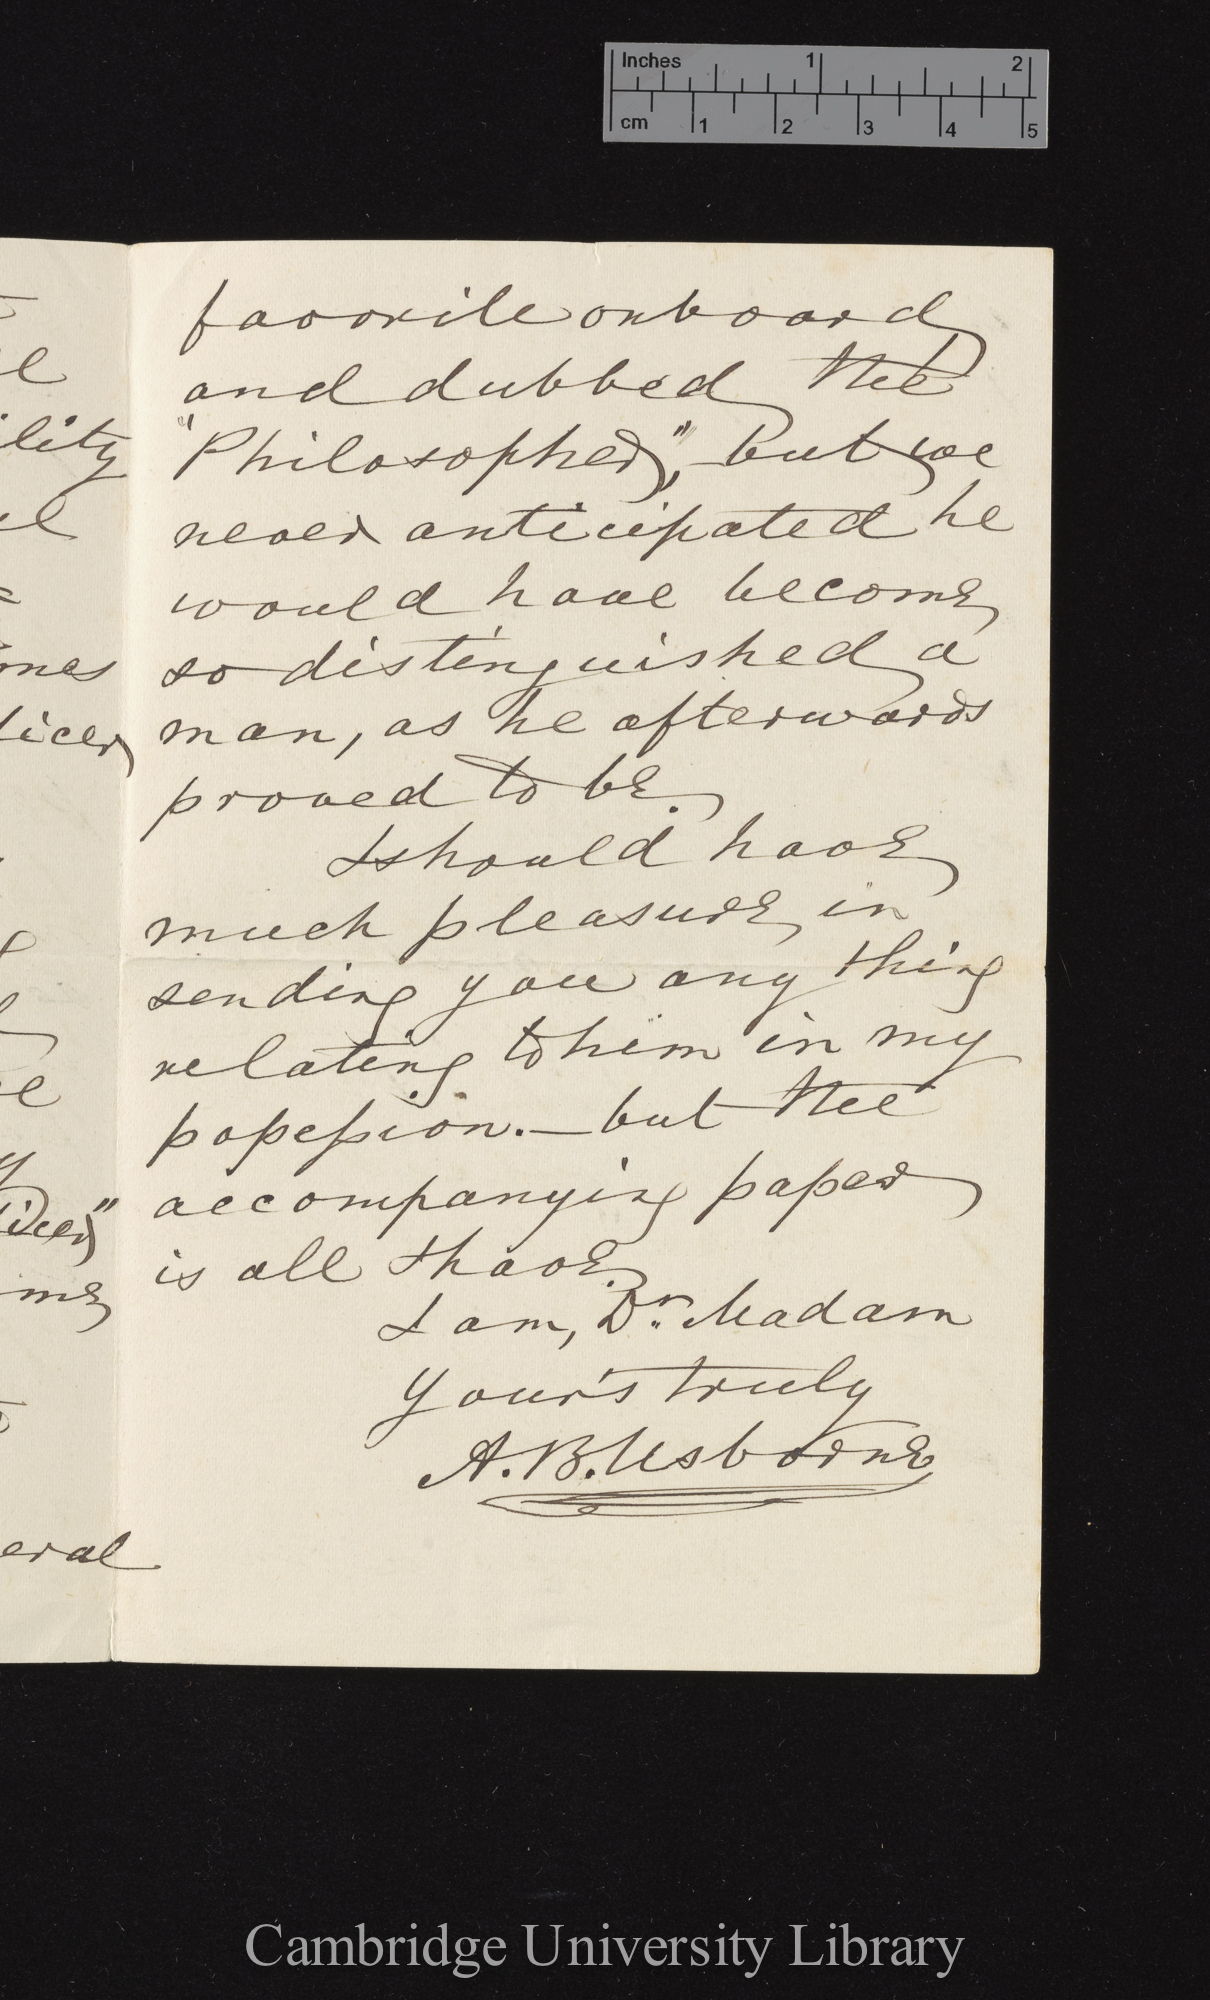 Inches 1 2
cm 1 2 3 4 5
favorite onboard
and dubbed the
"Philosopher", but we
never anticipated he
would have become
so distinguished a
man, as he afterwards
proved to be.
I should have
much pleasure in
sending you any thing
relating to him in my
possession. — but the
accompanying paper
is all I have.
I am, Dr. Madam
Your's truly
A. B. Usborne
lity
mes
ficer
ficer"
me
eral
Cambridge University Library